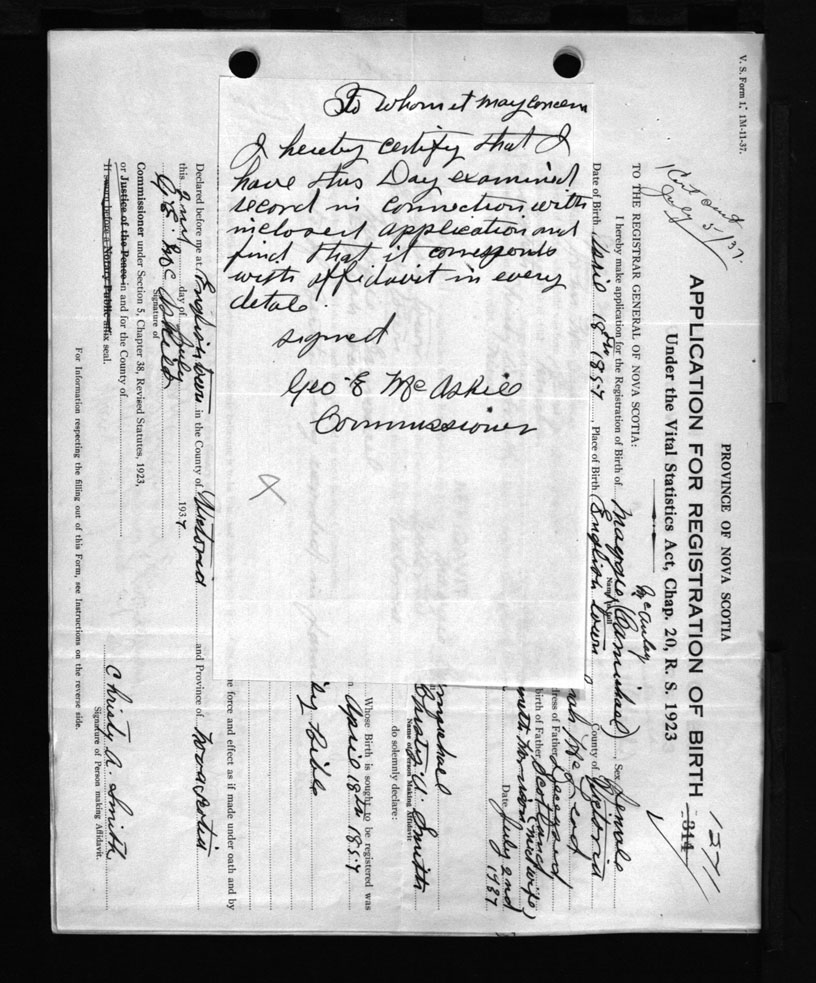 To whom it may concern
I hereby certify that I
have this Day examined
record in connection with
inclosed application and
find that it corresponds
with affidavit in every
detale.
signed
Geo E McAskill
Commissioner
V. S. Form 1. 1M-11-37.
July 5/37.
PROVINCE OF NOVA SCOTIA
APPLICATION FOR REGISTRATION OF BIRTH 311 1271
Under the Vital Statistics Act, Chap. 20, R. S. 1923
TO THE REGISTRAR GENERAL OF NOVA SCOTIA:
McAuley
I hereby make application for the Registration of Birth of Maggie (Carmichael), Sex female
Name in full
Date of Birth April 18th 1857, Place of Birth English town County of Victoria
McLeod
dress of Father Deceased
birth of Father Scotland
(midwife)
Date July 2nd 1937
Christy A. Smith
Name of Person Making Affidavit
do solemnly declare:
Whose Birth is sought to be registered was
April 18th 1857
by Bible
e force and effect as if made under oath and by
Declared before me at Englishtown in the County of Victoria and Province of Nova Scotia
this 2nd day of July 1937
G. E. McAskill
Signature of
Commissioner under Section 5, Chapter 38, Revised Statutes, 1923,
or Justice of the Peace in and for the County of
If sworn before a Notary Public affix seal.
Christy A. Smith
Signature of Person making Affidavit.
For Information respecting the filling out of this Form, see Instructions on the reverse side.